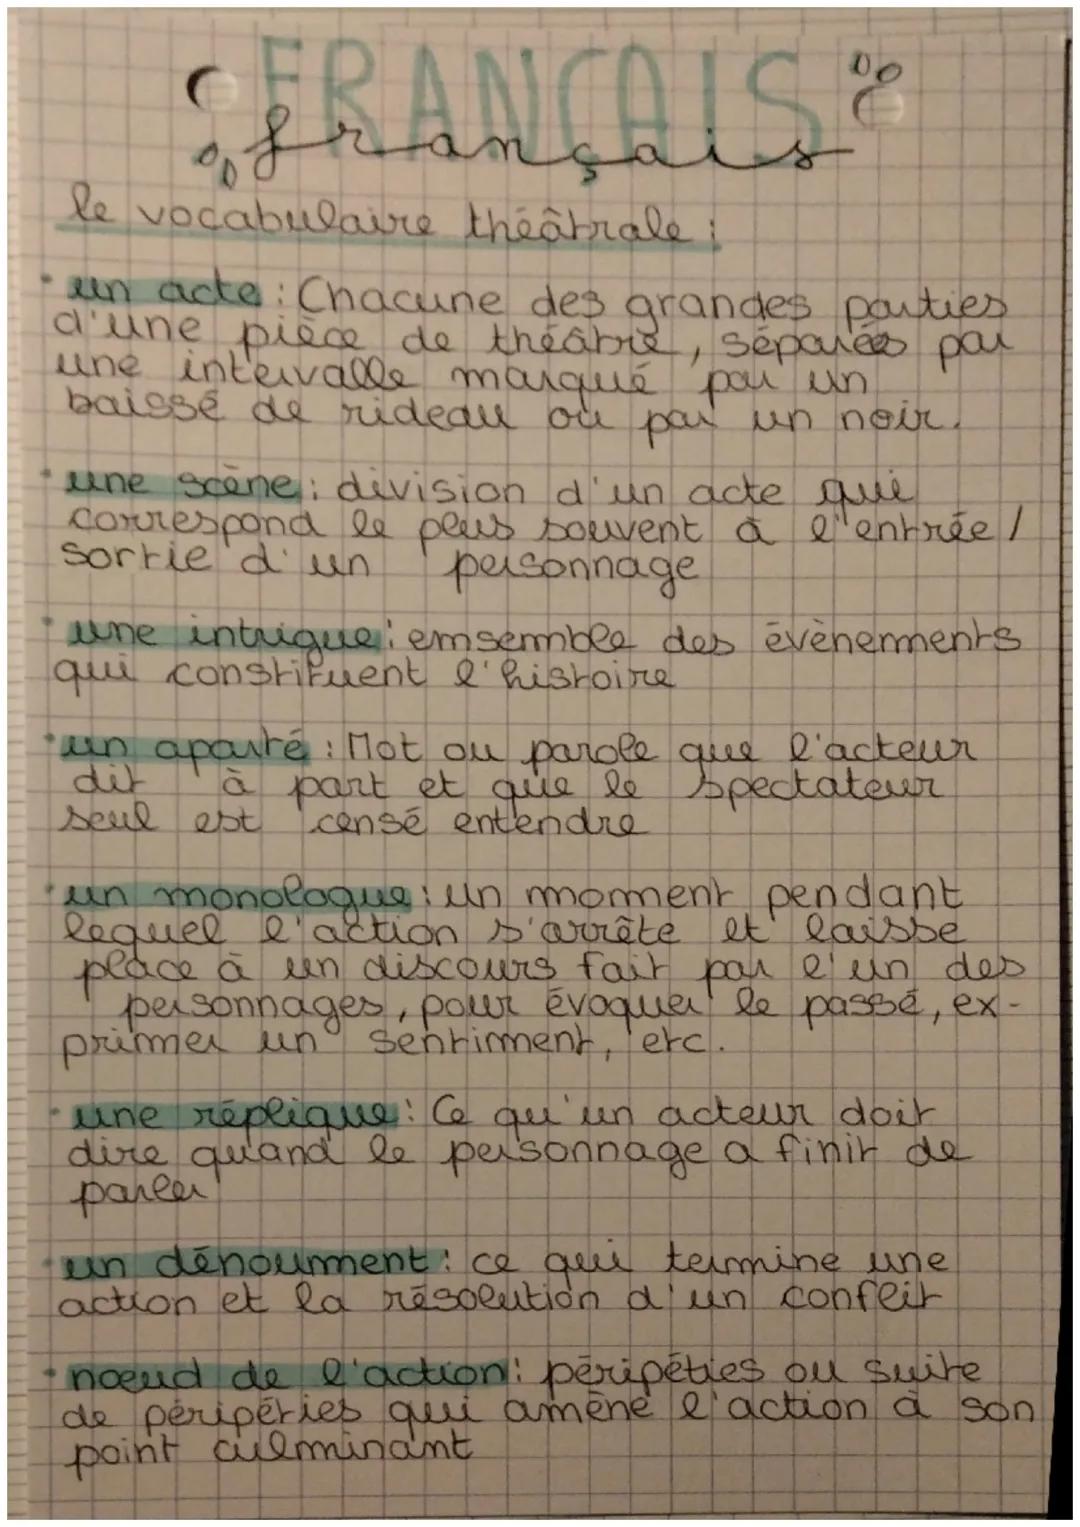 FRANÇAIS
français
le vocabulaire théâtrale :
• un acte : Chacune des grandes parties
d'une pièce de théâtre, séparées par
une intervalle marqué par un
baissé de rideau ou par un noir.
• une scène : division d'un acte qui
correspond le plus souvent à l'entrée /
sortie d'un personnage
• une intrigue : emsemble des évènements
qui constituent l'histoire
• un aparté : Mot ou parole que l'acteur
dit à part et que le spectateur
seul est censé entendre
• un monologue : un moment pendant
lequel l'action s'arrête et laisse
place à un discours fait par l'un des
personnages, pour évoquer le passé, ex-
primer un sentiment, etc.
• une réplique : Ce qu'un acteur doit
dire quand le personnage a finit de
parler
• un dénoument : ce qui termine une
action et la résolution d'un confeit
• nœud de l'action : péripéties ou suite
de péripéties qui amène l'action à son
point culminant